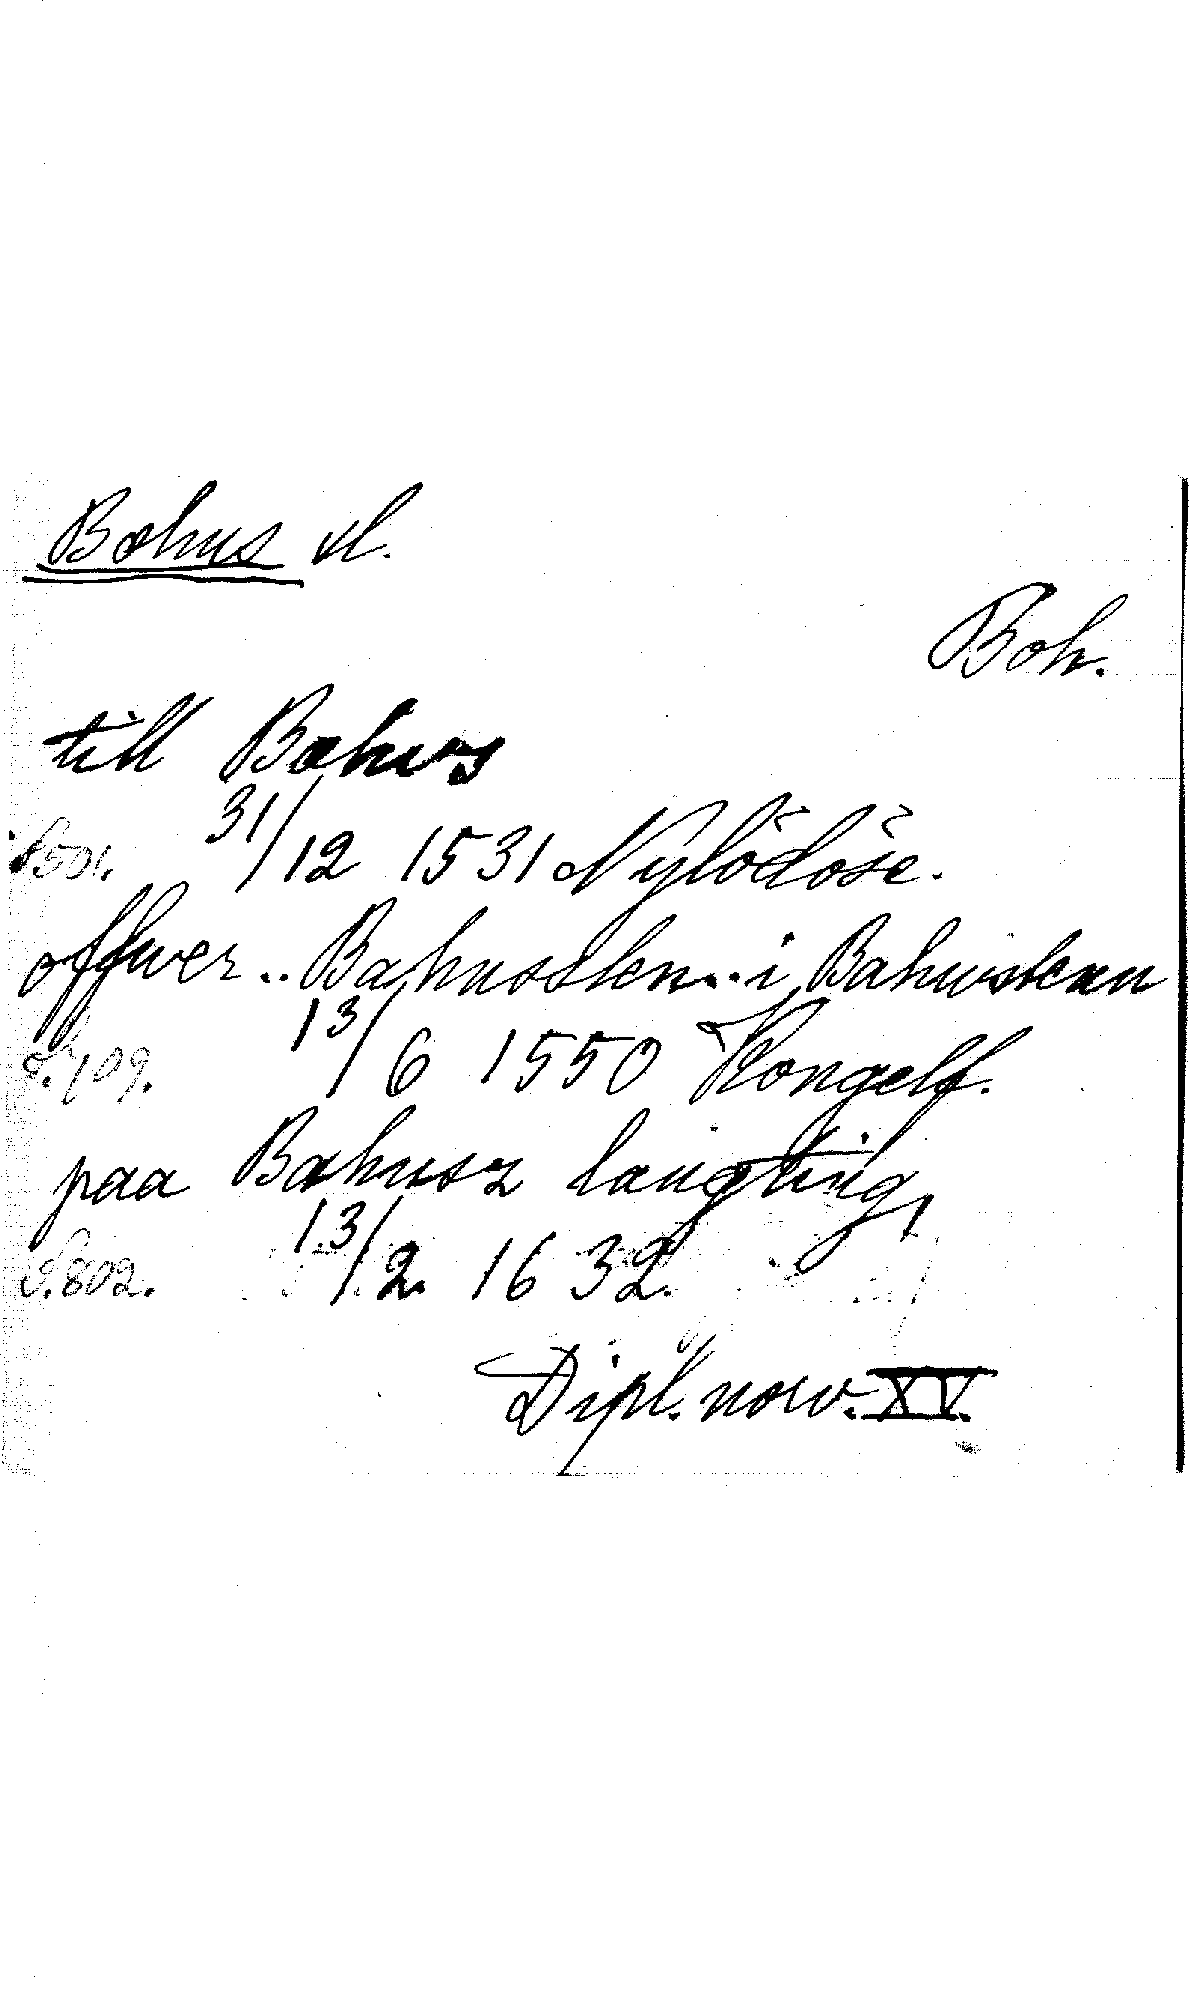 Bohus sl.
Boh.
till Bahus
S. 501. 31/12 1531 Nylödöse.
offwer .. Bahusslen .. i Bahuslenn
S. 109. 13/6 1550 Kongelf.
paa Bahusz laugting,
S. 802. 13/2. 1632.
Dipl. norv. XV.